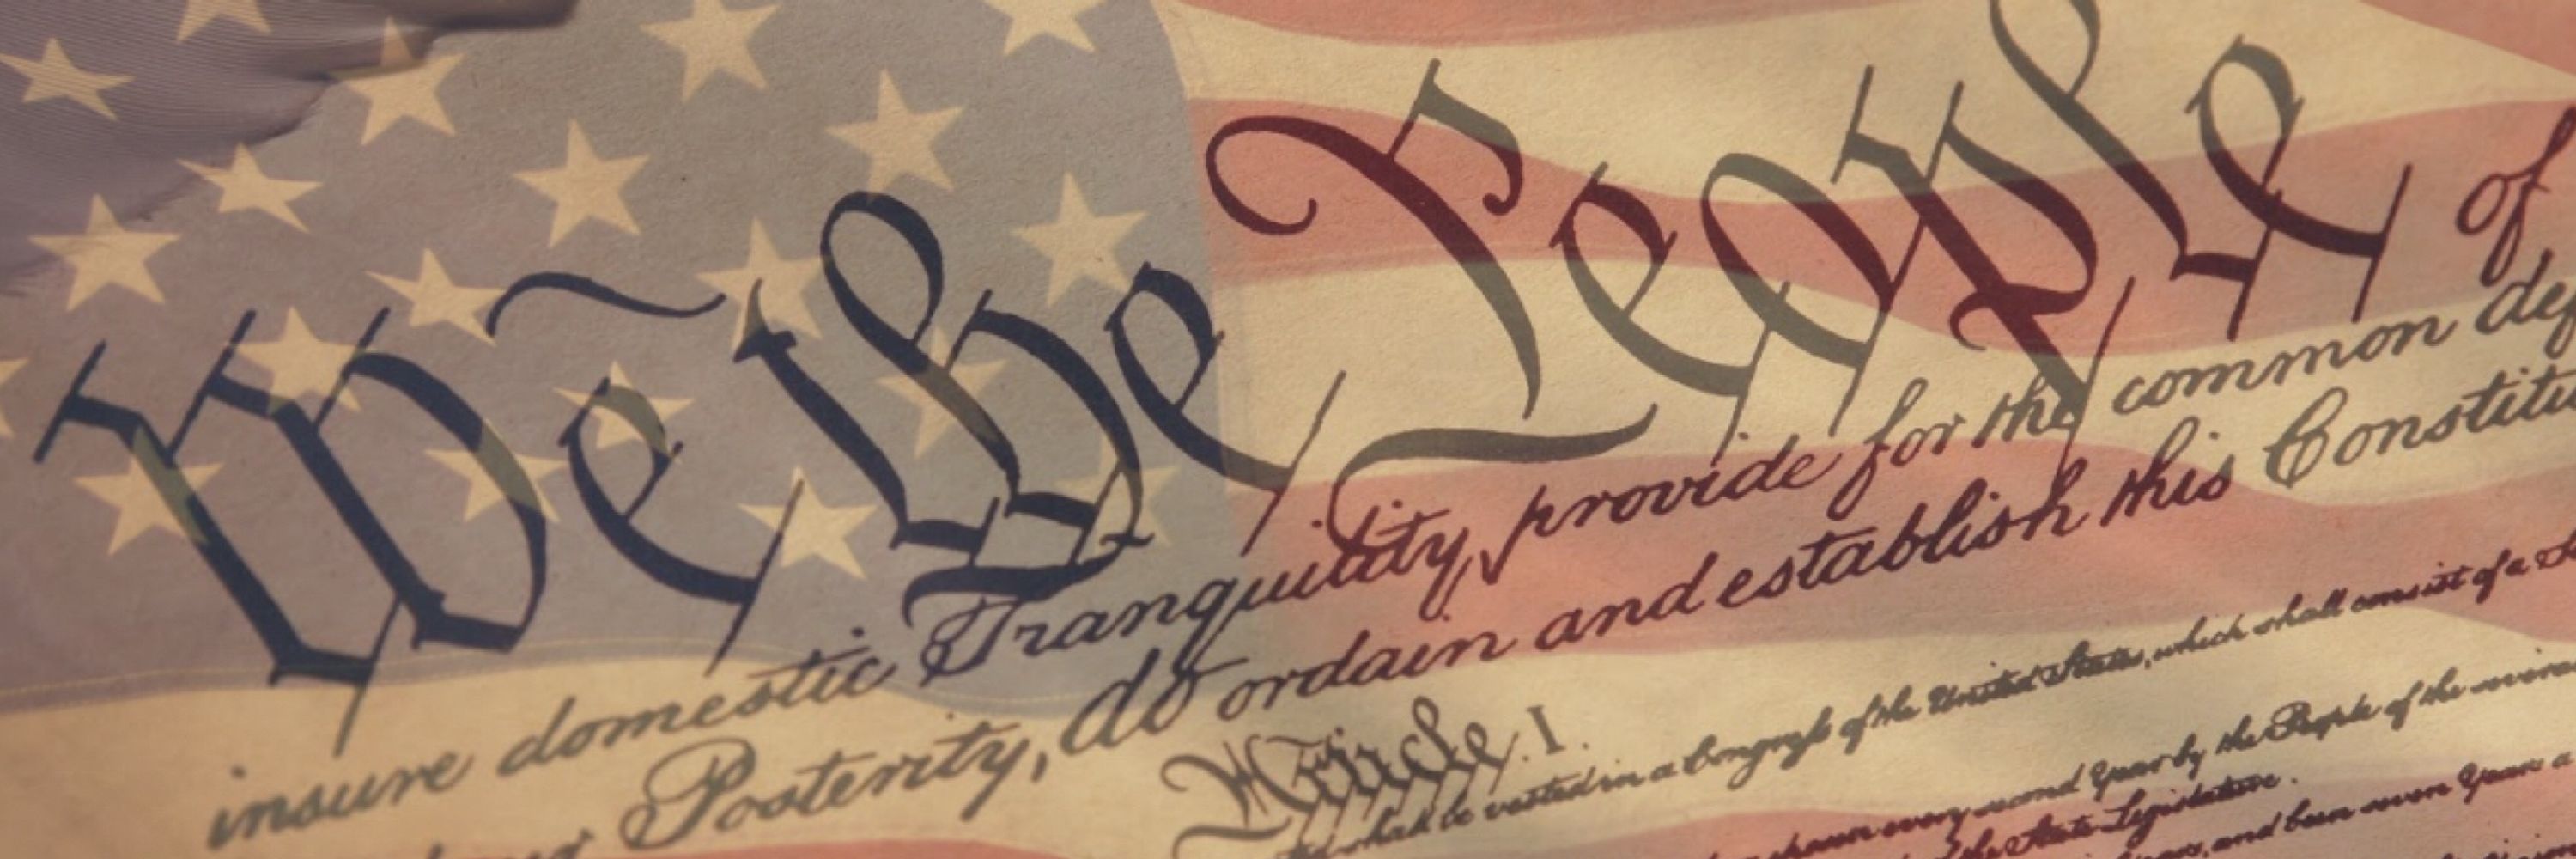 We the People of
insure domestic Tranquility, provide for the common
Posterity, do ordain and establish this
Article. I.
shall be vested in a Congress of the United States, which shall consist of a
chosen every second Year by the People of the
the State Legislature.
and been seven Years a